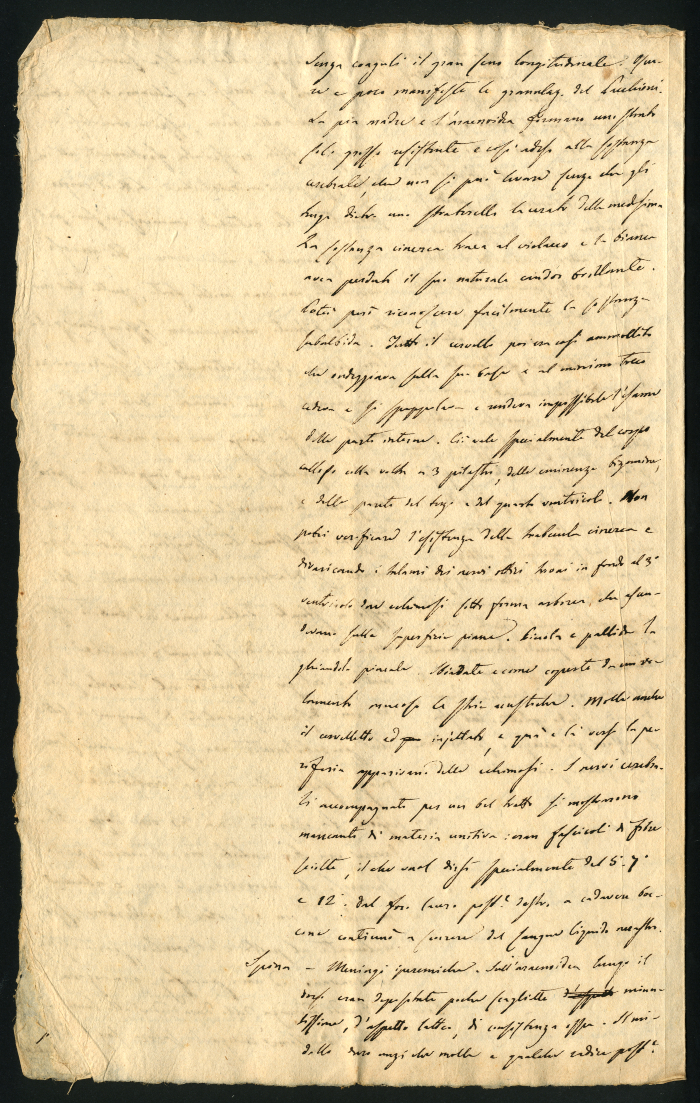 senza coaguli il gran seno longitudinale. Ra-
re e poco manifeste le granulaz. del Pacchioni.
La pia madre e l'aracnoidea formano uno strato
solo grosso resistente e così adeso alla sostanza
cerebrale che non si può levare senza che gli
tenga dietro uno straterello lacerato della medesima
La sostanza cinerea traea al violaceo e la bianca
avea perduto il suo naturale candor brillante.
Potei però riconoscere facilmente la sostanza
subalbida. Tutto il cervello poi era così ammollito
che ondeggiava sulla sua base e al minimo tocco
cedeva e si spappolava e rendeva impossibile l'esame
delle parti interne. Ciò vale specialmente del corpo
calloso colla volta a 3 pilastri, delle eminenze bigemine,
e delle pareti del terzo e del quarto ventricolo. Non
potei verificare l'esistenza della trabecula cinerea e
divaricando i talami dei nervi ottici trovai in fondo al 3°
ventricolo due echimosi sotto forma arborea, che assu-
devano sulla superficie piana. Piccola e pallida la
ghiandola pineale. Sbiadate e come coperte da un ve-
lamento mucoso le strie acustiche. Molle anche
il cervelletto ed injettato, e quà e là verso la pe-
riferia apparivano delle echimosi. I nervi cerebra-
li accompagnati per un bel tratto si mostravano
mancanti di materia unitiva: eran fascicoli di fibre
sciolte, il che vuol dirsi specialmente del 5° 7°
e 12°. Dal foro lacero post.e destro a cadavere boc-
cone continuò a scorrere del sangue liquido nerastro.
Spina — Meningi iperemiche. Sull'aracnoidea lungo il
dorso eran depositate poche scagliette d'aspetto minu-
tissime, d'aspetto latteo, di consistenza ossea. Il mi-
dollo duro anzi che molle e qualche radice post.e